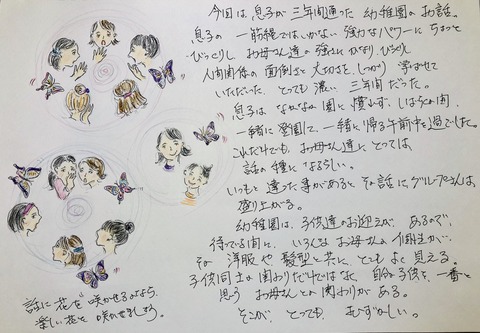 今回は息子が三年間通った幼稚園のお話。
息子の一筋縄ではいかない強力なパワーにちょっと
びっくりし お母さん達の強さにびっくり
人間関係の面倒さと大切さを、しっかり学ばせて
いただいた、とっても濃い三年間だった。
息子は なかなか園に慣れず、しばらくの間、
一緒に登園して、一緒に帰る午前中を過ごした。
これだけでも、お母さん達にとっては
話の種になるらしい。
いつもと違った事があると その話に、グループさんは
盛り上がる。
幼稚園は、子供達のお迎えが あるので、
待っている間に、いろんなお母さんの個性が
その洋服や髪型と共に、とてもよく見える。
子供同士の関わりだけではなく、自分の子供を、一番と
思う お母さんとの関わりがある。
そこが、とっても むずかしい。
話に花を咲かせるのなら、
楽しい花を 咲かせましょう。